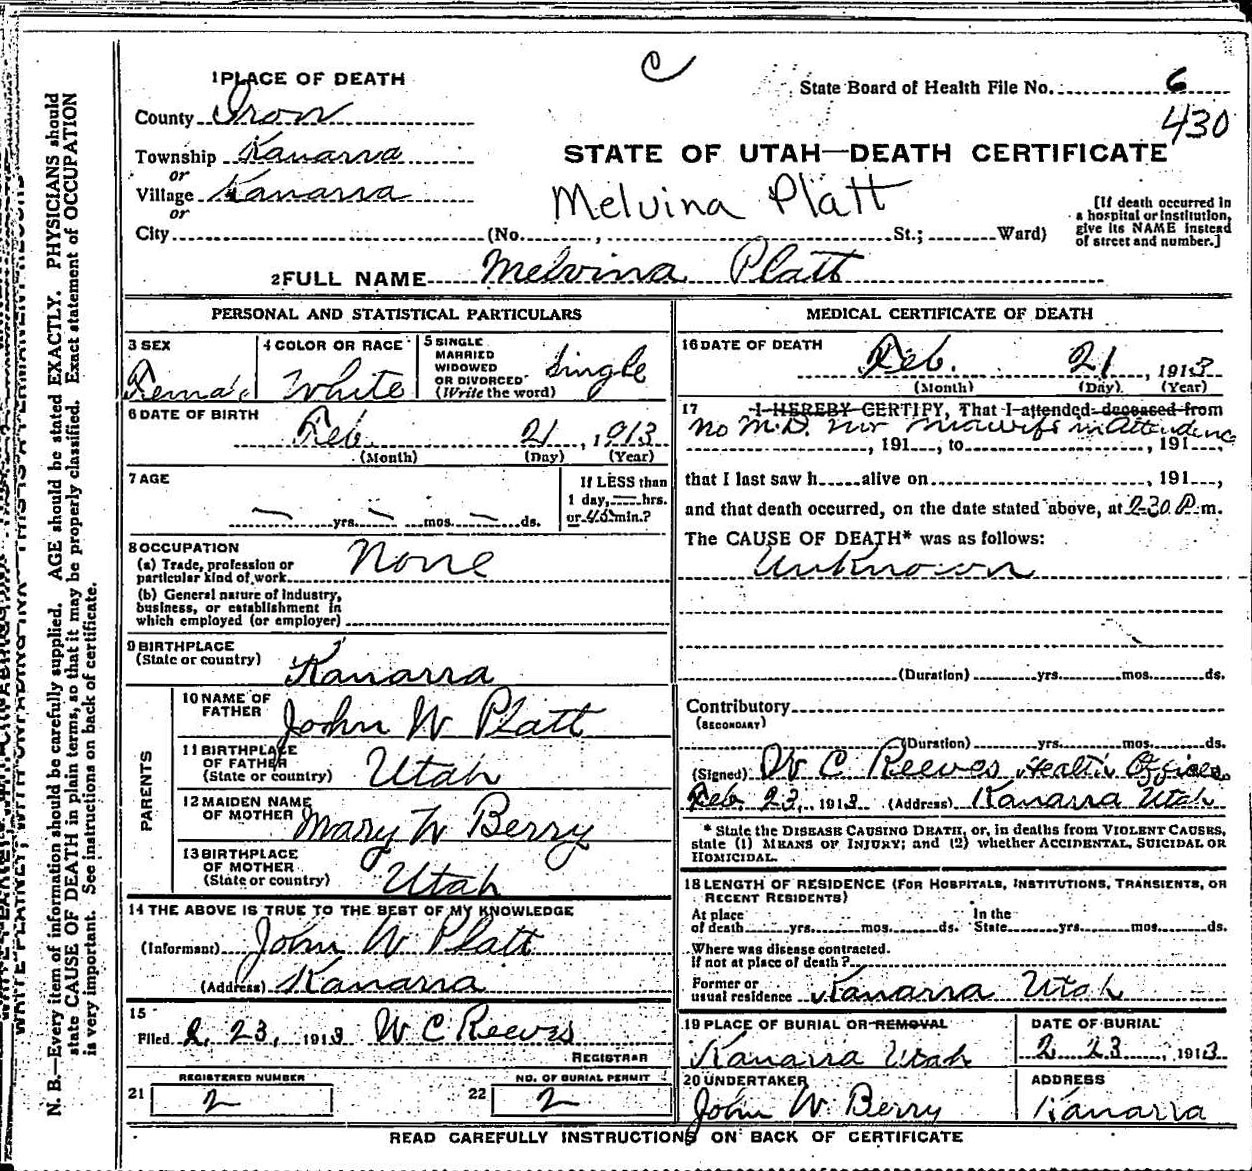 C
1 PLACE OF DEATH
State Board of Health File No. 6
430
County Iron
Township Kanarra
or
Village Kanarra
or
City (No. , St.; Ward)
STATE OF UTAH—DEATH CERTIFICATE
Melvina Platt
[If death occurred in
a hospital or institution,
give its NAME instead
of street and number.]
2 FULL NAME Melvina Platt
PERSONAL AND STATISTICAL PARTICULARS
3 SEX
Female
4 COLOR OR RACE
White
5 SINGLE
MARRIED
WIDOWED
OR DIVORCED
(Write the word)
Single
6 DATE OF BIRTH
Feb. 21, 1913
(Month) (Day) (Year)
7 AGE
yrs. mos. ds.
If LESS than
1 day, hrs.
or 45 min.?
8 OCCUPATION
(a) Trade, profession or
particular kind of work
None
(b) General nature of industry,
business, or establishment in
which employed (or employer)
9 BIRTHPLACE
(State or country)
Kanarra
PARENTS
10 NAME OF
FATHER
John W Platt
11 BIRTHPLACE
OF FATHER
(State or country)
Utah
12 MAIDEN NAME
OF MOTHER
Mary W Berry
13 BIRTHPLACE
OF MOTHER
(State or country)
Utah
14 THE ABOVE IS TRUE TO THE BEST OF MY KNOWLEDGE
(Informant) John W Platt
(Address) Kanarra
15
Filed 2, 23, 1913 W C Reeves
REGISTRAR
REGISTERED NUMBER
21 2
NO. OF BURIAL PERMIT
22 2
MEDICAL CERTIFICATE OF DEATH
16 DATE OF DEATH
Feb. 21, 1913
(Month) (Day) (Year)
17 I HEREBY CERTIFY, That I attended deceased from
No M.D. nor Midwife in attendence
, 191 , to , 191 ,
that I last saw h alive on , 191 ,
and that death occurred, on the date stated above, at 2-30 P.m.
The CAUSE OF DEATH* was as follows:
Unknown
(Duration) yrs. mos. ds.
Contributory
(SECONDARY)
(Duration) yrs. mos. ds.
(Signed) W C Reeves Health Officer
Feb. 23, 1913 (Address) Kanarra Utah
* State the DISEASE CAUSING DEATH, or, in deaths from VIOLENT CAUSES,
state (1) MEANS OF INJURY; and (2) whether ACCIDENTAL, SUICIDAL OR
HOMICIDAL.
18 LENGTH OF RESIDENCE (FOR HOSPITALS, INSTITUTIONS, TRANSIENTS, OR
RECENT RESIDENTS)
At place
of death yrs. mos. ds.
In the
State yrs. mos. ds.
Where was disease contracted.
If not at place of death?
Former or
usual residence Kanarra Utah
19 PLACE OF BURIAL OR REMOVAL
Kanarra Utah
DATE OF BURIAL
2 23, 1913
20 UNDERTAKER
John W. Berry
ADDRESS
Kanarra
READ CAREFULLY INSTRUCTIONS ON BACK OF CERTIFICATE
N. B.—Every item of information should be carefully supplied. AGE should be stated EXACTLY. PHYSICIANS should
state CAUSE OF DEATH in plain terms, so that it may be properly classified. Exact statement of OCCUPATION
is very important. See instructions on back of certificate.